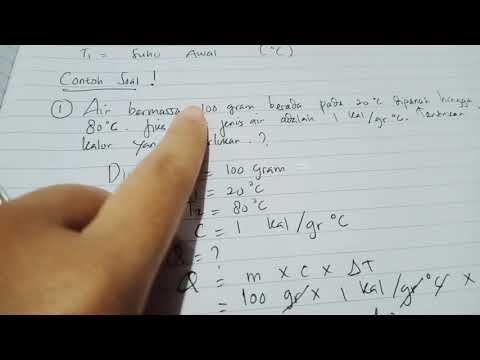 T₁ = Suhu Awal (°C)
Contoh Soal !
① Air bermassa 100 gram berada pada 20°C dipanasi hingga
80°C. Jika jenis air adalah 1 kal/gr°C.
kalor yang . ?
= 100 gram
= 20°C
T₂ = 80°C
C = 1 kal/gr°C
Q = ?
Q = m x c x ΔT
= 100 gr x 1 kal/gr°C x